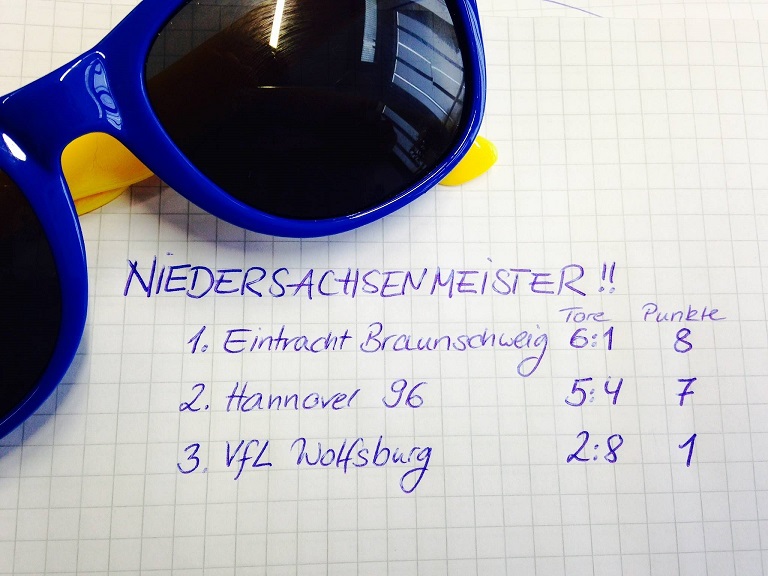 NIEDERSACHSENMEISTER!!
Tore Punkte
1. Eintracht Braunschweig 6:1 8
2. Hannover 96 5:4 7
3. VfL Wolfsburg 2:8 1